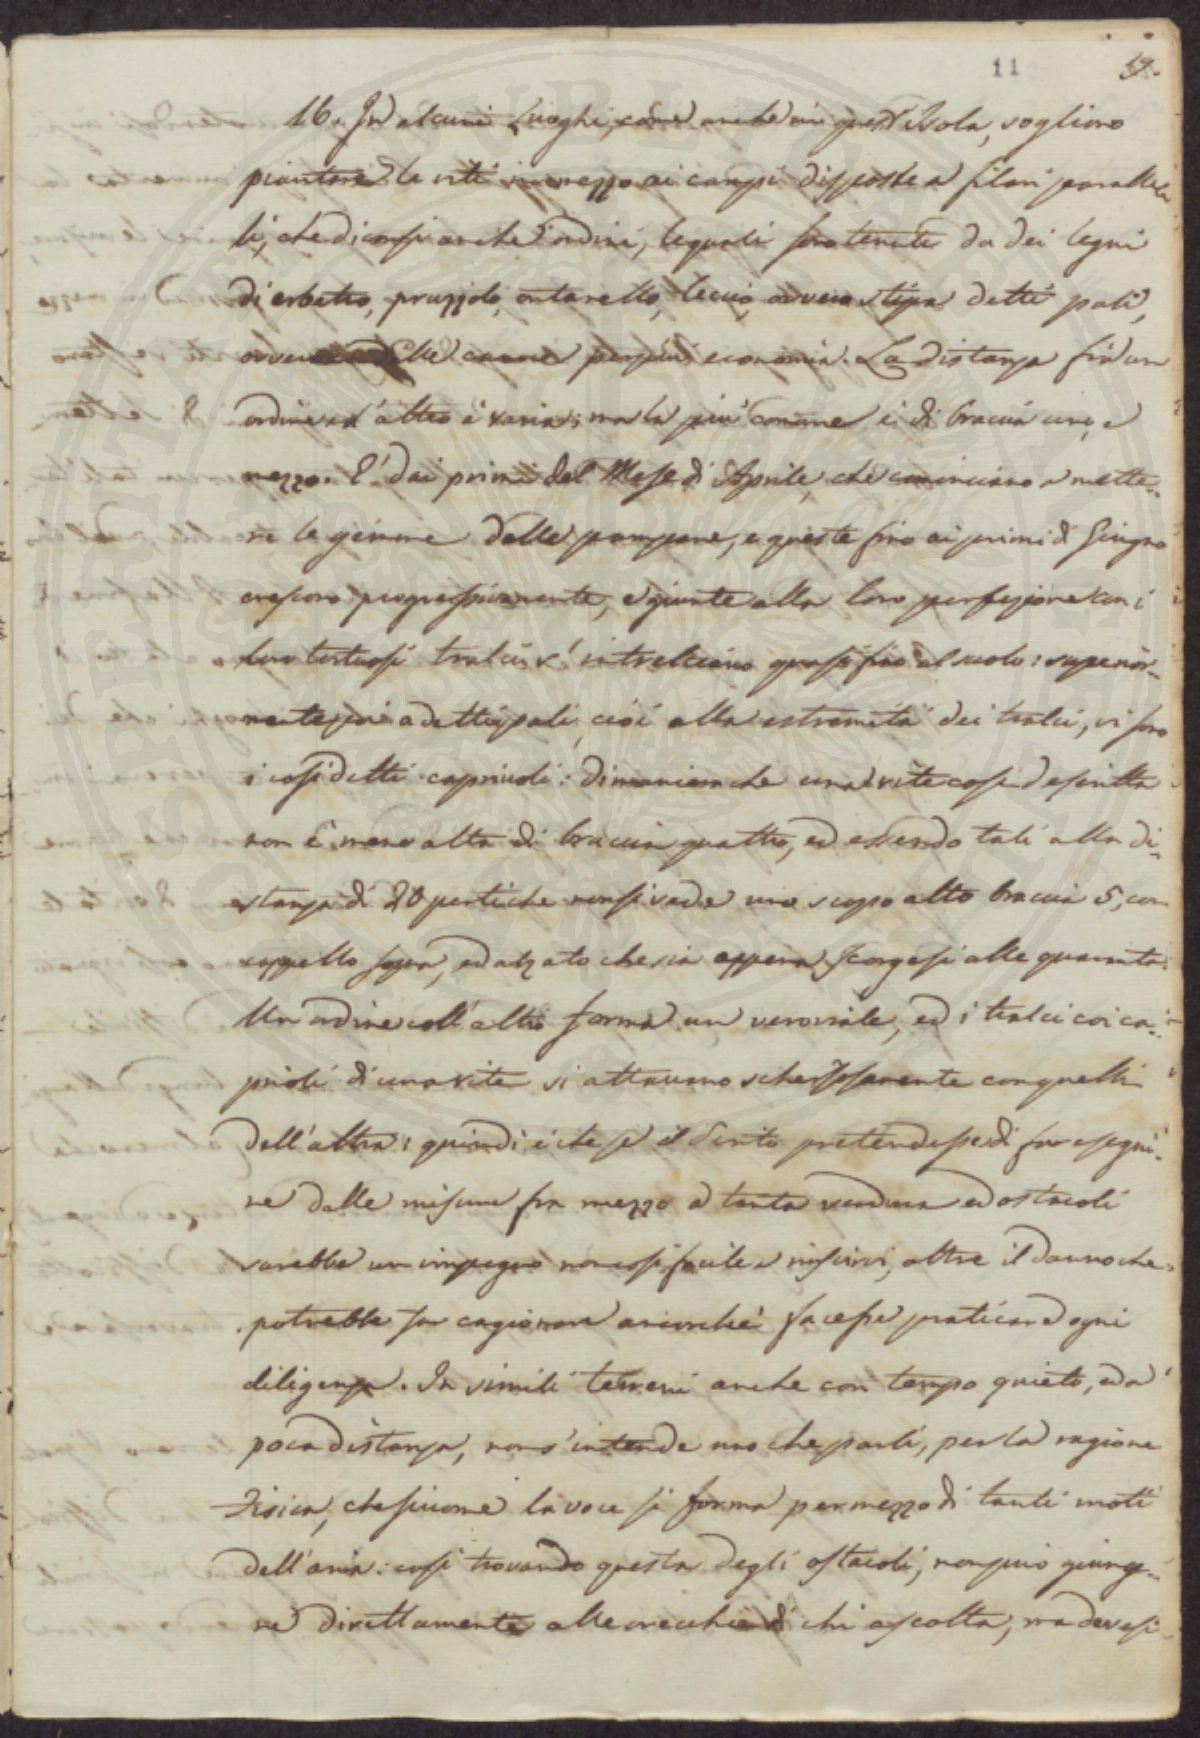 11 19.
16. In alcuni Luoghi, come anche in quest'Isola, sogliono
piantare le viti in mezzo ai campi disposte a filari paralle
li, che diconsi anche ordini, le quali son tenute da dei legni
di erbatro, pruzzolo, ontanello, leccio, ovvero stipa detti pali,
ovvero delle canne per più economia. La distanza fra un
ordine e l'altro è varia; ma la più comune è di braccia uno, e
mezzo. E' dai primi del Mese di Aprile, che cominciano a mette-
re le gemme delle pampane, e queste fino ai primi di Giugno
crescono progressivamente, e giunte alla loro perfezione con i
loro tortuosi tralci s'intrecciano quasi fino al suolo: superior-
mente poi a detti pali, cioè alla estremità dei tralci, vi sono
i così detti caprioli: dimanierache una vite così descritta
non è meno alta di braccia quattro, ed essendo tali alla di-
stanza di 20 pertiche non si vede uno scopo alto braccia 5, con
cappello sopra, ed alzato che sia appena scorgesi alle quaranta.
Un ordine coll'altro forma un , ed i tralci coi ca-
prioli di una vite si attaccano scherzosamente con quelli
dell'altra: quindi è che se il Perito pretendesse di far esegui-
re delle misure fra mezzo a tanta verdura ed ostacoli
sarebbe un impegno non così facile a riuscirvi, oltre il danno che
potrebbe far cagionare ancorchè facesse praticare ogni
diligenza. In simili terreni anche con tempo quieto, ed a
poca distanza, non s'intende uno che parli, per la ragione
Fisica, che siccome la voce si forma per mezzo di tanti moti
dell'aria: così trovando questa degli ostacoli, non può giunge-
re direttamente alle orecchie di chi ascolta, ma devesi